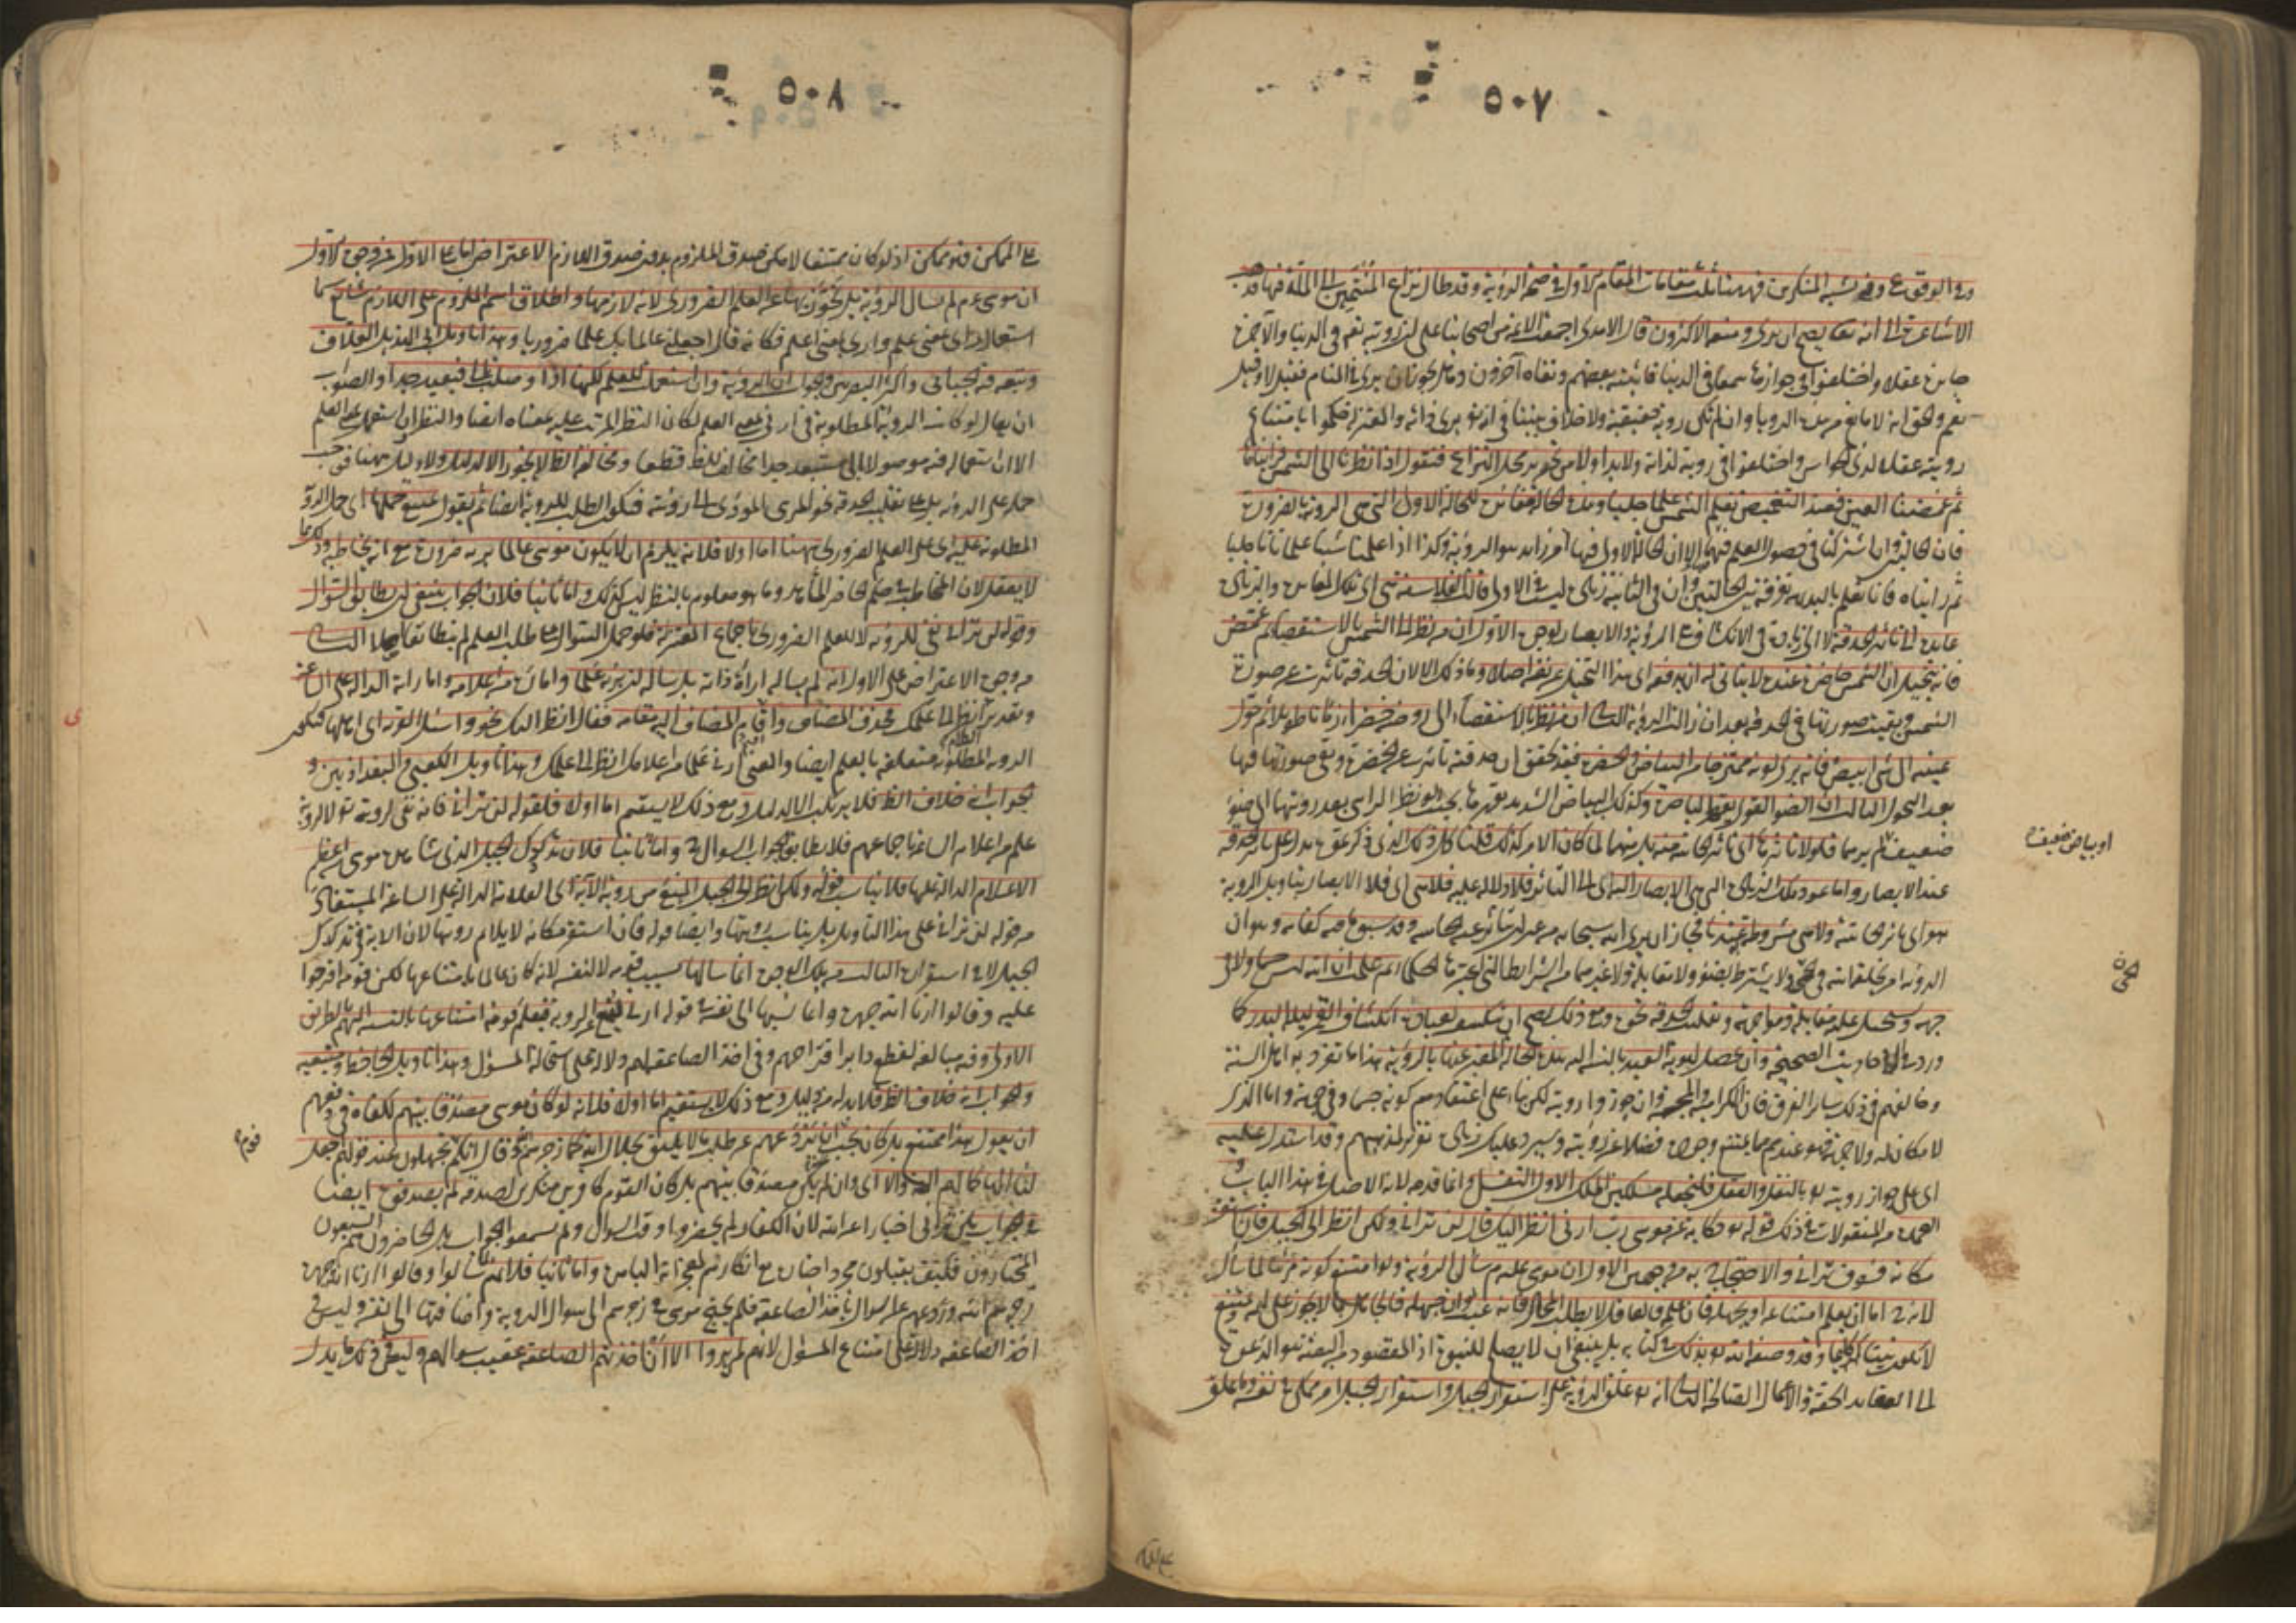 ٥٠٧
وفي الوقوع وفي شبه المنكرين فههنا ثلث مقامات المقام الاول في صحة الرؤية وقد طال نزاع المنتمين الى الملة فيها فذهب
الاشاعرة الى انه تعالى يصح ان يرى ومنعه الاكثرون قال الآمدي اجمعت الائمة من اصحابنا على ان رؤيته تعالى في الدنيا والآخرة
جايزة عقلا واختلفوا في جوازها سمعا في الدنيا فاثبته بعضهم ونفاه آخرون وهل يجوز ان يرى في المنام فقيل لا وقيل
نعم والحق انه لا مانع من هذه الرؤيا وان لم تكن رؤية حقيقية ولا خلاف بيننا في انه تعالى يرى ذاته والمعتزلة حكموا بامتناع
رؤيته عقلا لذوي الحواس واختلفوا في رؤيته لذاته ولا بد اولا من تحرير محل النزاع فنقول اذا نظرنا الى الشمس فرأيناها
ثم غمضنا العين فعند التغميض نعلم الشمس علما جليا وهذه الحالة مغايرة للحالة الاولى التي هي الرؤية بالضرورة
فان الحالتين وان اشتركتا في حصول العلم فيهما الا ان الحالة الاولى فيها امر زايد هو الرؤية وكذا اذا علمنا شيئا علما تاما جليا
ثم رأيناه فانا نعلم بالبديهة تفرقة بين الحالتين وان في الثانية زيادة ليست في الاولى قالت الفلاسفة هي اي تلك المغايرة والزيادة
عايدة الى تأثر الحدقة لا الى زيادة في الانكشاف هي الرؤية والابصار لوجوه الاول ان من نظر الى الشمس بالاستقصاء ثم غمض
فانه يتخيل ان الشمس حاضرة عنده لا يتأتى له ان يدفع اي هذا التخيل عن نفسه اصلا وما ذلك الا لان الحدقة تأثرت عن صورة
الشمس وبقيت صورتها في الحدقة بعد ان زالت الرؤية الثاني ان من نظر بالاستقصاء الى روضة خضراء زمانا طويلا ثم حول
عينيه الى شيء ابيض فانه يرى لونه ممتزجا من البياض والخضرة فقد تحقق ان حدقته تأثرت عن الخضرة وبقي صورتها فيها
بعد التحول الثالث ان الضوء القوي يقهر الباصرة وكذلك البياض الشديد يقهرها بحيث لو نظر الرائي بعد رؤيتها الى ضوء
ضعيف لم يرهما فلولا تأثرها اي تأثر الحاسة منه بل منهما لما كان الامر كذلك قلنا كل ذلك الذي ذكرتموه يدل على تأثر الحدقة
عند الابصار واما عود تلك الزيادة التي هي الابصار اليه اي الى التأثر فلا دلالة عليه فلا هي اي فلا الابصار بتأويل الرؤية
هو اي تأثر الحاسة ولا هي مشروطة به عندنا فجاز ان يرى الله سبحانه من غير ان تتأثر عنه الحاسة وقد سبق ما فيه كفاية وهو ان
الرؤية امر يخلقه الله في الحي ولا يشترط بضوء ولا مقابلة ولا غيرهما من الشرايط التي اعتبرها الحكماء ثم علمت ان الله ليس جسما ولا في
جهة ويستحيل عليه مقابلة ومواجهة وتقليب حدقة نحوه ومع ذلك يصح ان ينكشف لعباده انكشاف القمر ليلة البدر كما
ورد في الاحاديث الصحيحة وان يحصل لهوية العبد بالنسبة اليه هذه الحالة المعبر عنها بالرؤية هذا ما تفرد به اهل السنة
وخالفهم في ذلك سائر الفرق فان الكرامية والمجسمة وان جوزوا رؤيته لكن بناء على اعتقادهم كونه جسما وفي جهة واما الذي
لا مكان له ولا جهة فهو عندهم مما يمتنع وجوده فضلا عن رؤيته وسيرد عليك زيادة تقرير لمذهبهم وقد استدل عليه
اي على جواز رؤيته تعالى بالنقل والعقل فلنجعله مسلكين المسلك الاول النقل وانما قدمه لانه الاصل في هذا الباب و
العمدة من المنقولات في ذلك قوله تعالى حكاية عن موسى رب ارني انظر اليك قال لن تراني ولكن انظر الى الجبل فان استقر
مكانه فسوف تراني والاحتجاج به من وجهين الاول ان موسى عليه م سأل الرؤية ولو امتنع كونه مرئيا لما سأل
لانه ح اما ان يعلم امتناعه او يجهله فان علمه فالعاقل لا يطلب المحال فانه عبث وان جهله فالجاهل بما لا يجوز على الله ويمتنع
لا يكون نبيا كليما وقد وصفه الله تعالى بذلك في كتابه بل ينبغي ان لا يصلح للنبوة اذ المقصود من البعثة هو الدعوة
الى العقايد الحقة والاعمال الصالحة الثاني انه تعالى علق الرؤية على استقرار الجبل واستقرار الجبل امر ممكن في نفسه وما علق
او بياض ضعيف
الحي
على الممكن
٥٠٨
على الممكن فهو ممكن اذ لو كان ممتنعا لامكن صدق الملزوم بدون صدق اللازم الاعتراض اما على الاول فمن وجوه الاول
ان موسى عم لم يسأل الرؤية بل تجوز بها عن العلم الضروري لانه لازمها واطلاق اسم الملزوم على اللازم شايع سيما
استعمال رأى بمعنى علم وارى بمعنى اعلم فكانه قال اجعلني عالما بك علما ضروريا وهذا تأويل ابي الهذيل العلاف
وتبعه فيه الجبائي واكثر البصريين والجواب ان الرؤية وان استعملت للعلم لكنها اذا وصلت بالى فبعيد جدا والصواب
ان يقال لو كانت الرؤية المطلوبة في ارني بمعنى العلم لكان النظر المرتب عليه بمعناه ايضا والنظر وان استعمل بمعنى العلم
الا ان استعماله فيه موصولا بالى مستبعد جدا مخالف للظ قطعا ومخالفة الظ لا يجوز الا لدليل ولا دليل ههنا فوجب
حمله على الرؤية بل على تقليب الحدقة نحو المرئي المؤدي الى رؤيته فيكون الطلب للرؤية ايضا ثم نقول يمتنع حملها اي حمل الرؤية
المطلوبة عليه اي على العلم الضروري ههنا اما اولا فلانه يلزم ان لا يكون موسى عالما بربه ضرورة مع انه يخاطبه وذلك مما
لا يعقل لان المخاطب في حكم الحاضر المشاهد وما هو معلوم بالنظر ليس كذلك واما ثانيا فلان الجواب ينبغي ان يطابق السؤال
وقوله لن تراني نفي للرؤية لا للعلم الضروري باجماع المعتزلة فلو حمل السؤال على طلب العلم لم يتطابقا اصلا الثاني
من وجوه الاعتراض على الاول انه لم يسأله اراءة ذاته بل سأله ان يريه علما واماره من اعلامه واماراته الدالة على الساعة
وتقديره انظر الى علمك فحذف المضاف واقام المضاف اليه مقامه فقال انظر اليك نحو واسئل القرية اي اهلها فيكون
الرؤية المطلوبة متعلقة بالعلم ايضا والمعنى ارني علما من اعلامك انظر الى علمك وهذا تأويل الكعبي والبغداديين و
الجواب انه خلاف الظ فلا يرتكب الا لدليل ومع ذلك لا يستقيم اما اولا فلقوله لن تراني فانه نفي لرؤيته تعالى لا لرؤية
علم من اعلام الساعة باجماعهم فلا يطابق الجواب السؤال ح واما ثانيا فلان تدكدك الجبل الذي شاهده موسى من اعظم
الاعلام الدالة عليها فلا يناسب قوله ولكن انظر الى الجبل المنع من رؤية الآية اي العلامة الدالة على الساعة المستفاد
من قوله لن تراني على هذا التأويل بل يناسب رؤيتها وايضا قوله فان استقر مكانه لا يلايم رؤيتها لان الآية في تدكدك
الجبل لا في استقراره الثالث من تلك الوجوه انما سألها بسبب قومه لا لنفسه لانه كان عالما بامتناعها لكن قومه اقترحوا
عليه وقالوا ارنا الله جهرة وانما نسبها الى نفسه في قوله ارني ليمنع عن الرؤية فيعلم قومه امتناعها بالنسبة اليهم بالطريق
الاولى وفيه مبالغة لقطع دابر اقتراحهم وفي اخذ الصاعقة لهم دلالة على استحالة المسؤل وهذا تأويل الجاحظ ومتبعيه
والجواب انه خلاف الظ فلا بد له من دليل ومع ذلك لا يستقيم اما اولا فلانه لو كان موسى مصدقا بينهم لكفاه في دفعهم
ان يقول هذا ممتنع بل كان يجب ان يردعهم عن طلب ما لا يليق بجلال الله كما زجرهم وقال انكم قوم تجهلون عند قولهم اجعل
لنا الها كما لهم آلهة والا اي وان لم يكن مصدقا بينهم بل كان القوم كافرين منكرين لصدقه لم يصدقوه ايضا
في الجواب بلن تراني اخبارا عن الله لان الكفار لم يحضروا وقت السؤال ولم يسمعوا الجواب بل الحاضرون هم السبعون
المختارون فكيف يقبلون مجرد اخباره مع انكارهم لمعجزاته الباهرة واما ثانيا فلانهم لما سألوا وقالوا ارنا الله جهرة
زجرهم الله وردعهم عن السؤال باخذ الصاعقة فلم يحتج موسى في زجرهم الى سؤال الرؤية واضافتها الى نفسه وليس في
اخذ الصاعقة دلالة على امتناع المسؤل لانهم لم يروا الا ان اخذتهم الصاعقة عقيب سؤالهم وليس في ذلك ما يدل
قوم